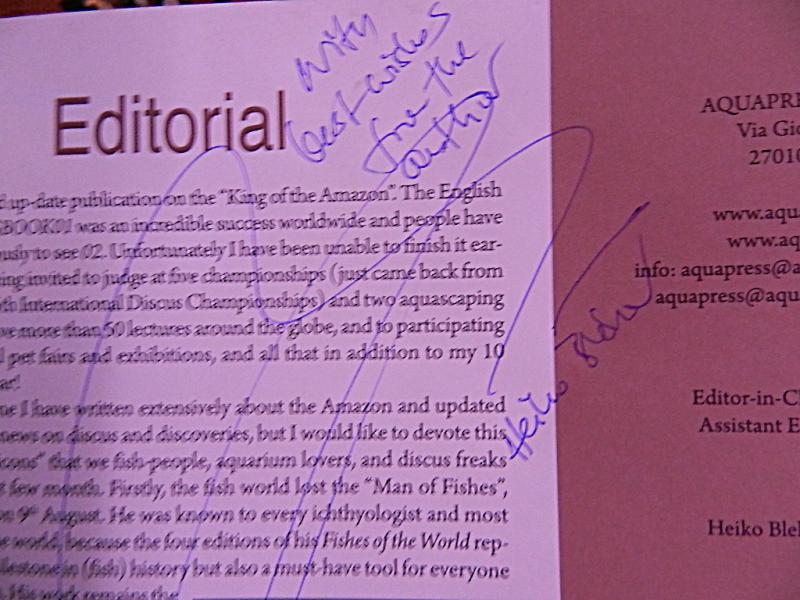 with
best wishes
from the
author
Editorial
up-date publication on the "King of the Amazon". The English
BOOK01 was an incredible success worldwide and people have
to see 02. Unfortunately I have been unable to finish it ear-
invited to judge at five championships (just came back from
International Discus Championships) and two aquascaping
more than 50 lectures around the globe, and to participating
pet fairs and exhibitions, and all that in addition to my 10
I have written extensively about the Amazon and updated
news on discus and discoveries, but I would like to devote this
that we fish-people, aquarium lovers, and discus freaks
few month. Firstly, the fish world lost the "Man of Fishes",
9th August. He was known to every ichthyologist and most
world, because the four editions of his Fishes of the World rep-
in (fish) history but also a must-have tool for everyone
His work remains the
Heiko
AQUAPRE
Via Gio
27010
www.aqu
www.aq
info: aquapress@a
aquapress@aqu
Editor-in-C
Assistant E
Heiko Ble